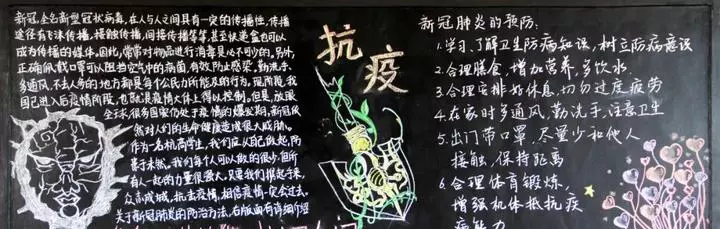 新冠全名新型冠状病毒,在人与人之间具有一定的传播性,传播
途径有飞沫传播,接触传播,间接传播等等,甚至快递盒也可以
成为传播的媒体,因此,常常对物品进行消毒是必不可少的。另外,
正确佩戴口罩可以阻挡空气中的病菌,有效防止感染。勤洗手、
多通风,不去人多的地方都是每个公民力所能及的行为。现阶段,我
国已进入后疫情阶段,也就是疫情大体上得以控制。但是,放眼
全球,很多国家仍处于疫情的爆发期,新冠依
然对人们的生命健康造成很大威胁。
作为一名杭高学生,我们应从自己做起,防
患于未然。我们每个人可以做的很少,但所
有人一起的力量很强大,只要我们携起手来,
众志成城,抗击疫情,相信疫情一定会过去。
关于新冠肺炎的防治方法,右版面有详细介绍
抗
疫
新冠肺炎的预防:
1.学习、了解卫生防病知识,树立防病意识
2.合理膳食,增加营养,多饮水.
3.合理安排好休息,切勿过度疲劳
4.在家时多通风,勤洗手,注意卫生
5.出门带口罩,尽量少和他人
接触,保持距离
6.合理体育锻炼,
增强机体抵抗疫
病能力